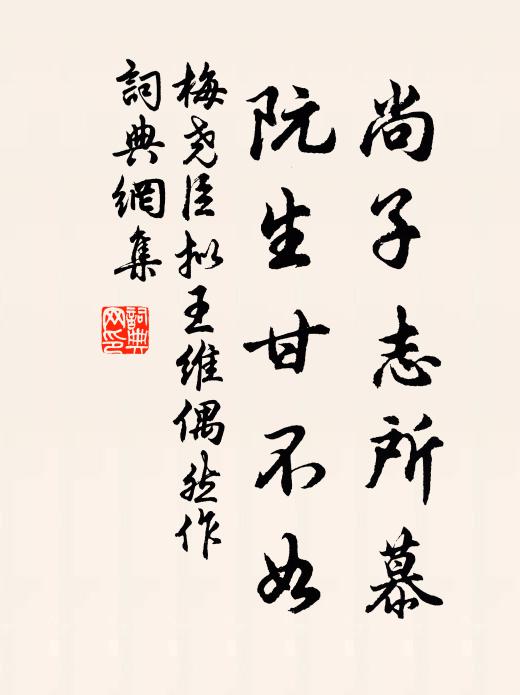 尚子志所慕
阮生甘不如
梅尧臣拟王维偶然作
詞典網集
詞典网印